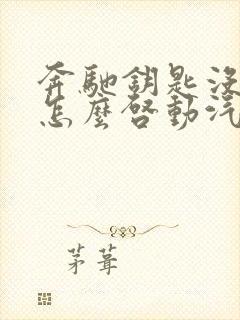 奔馳鑰匙沒
怎麼啓動汽
茅葺